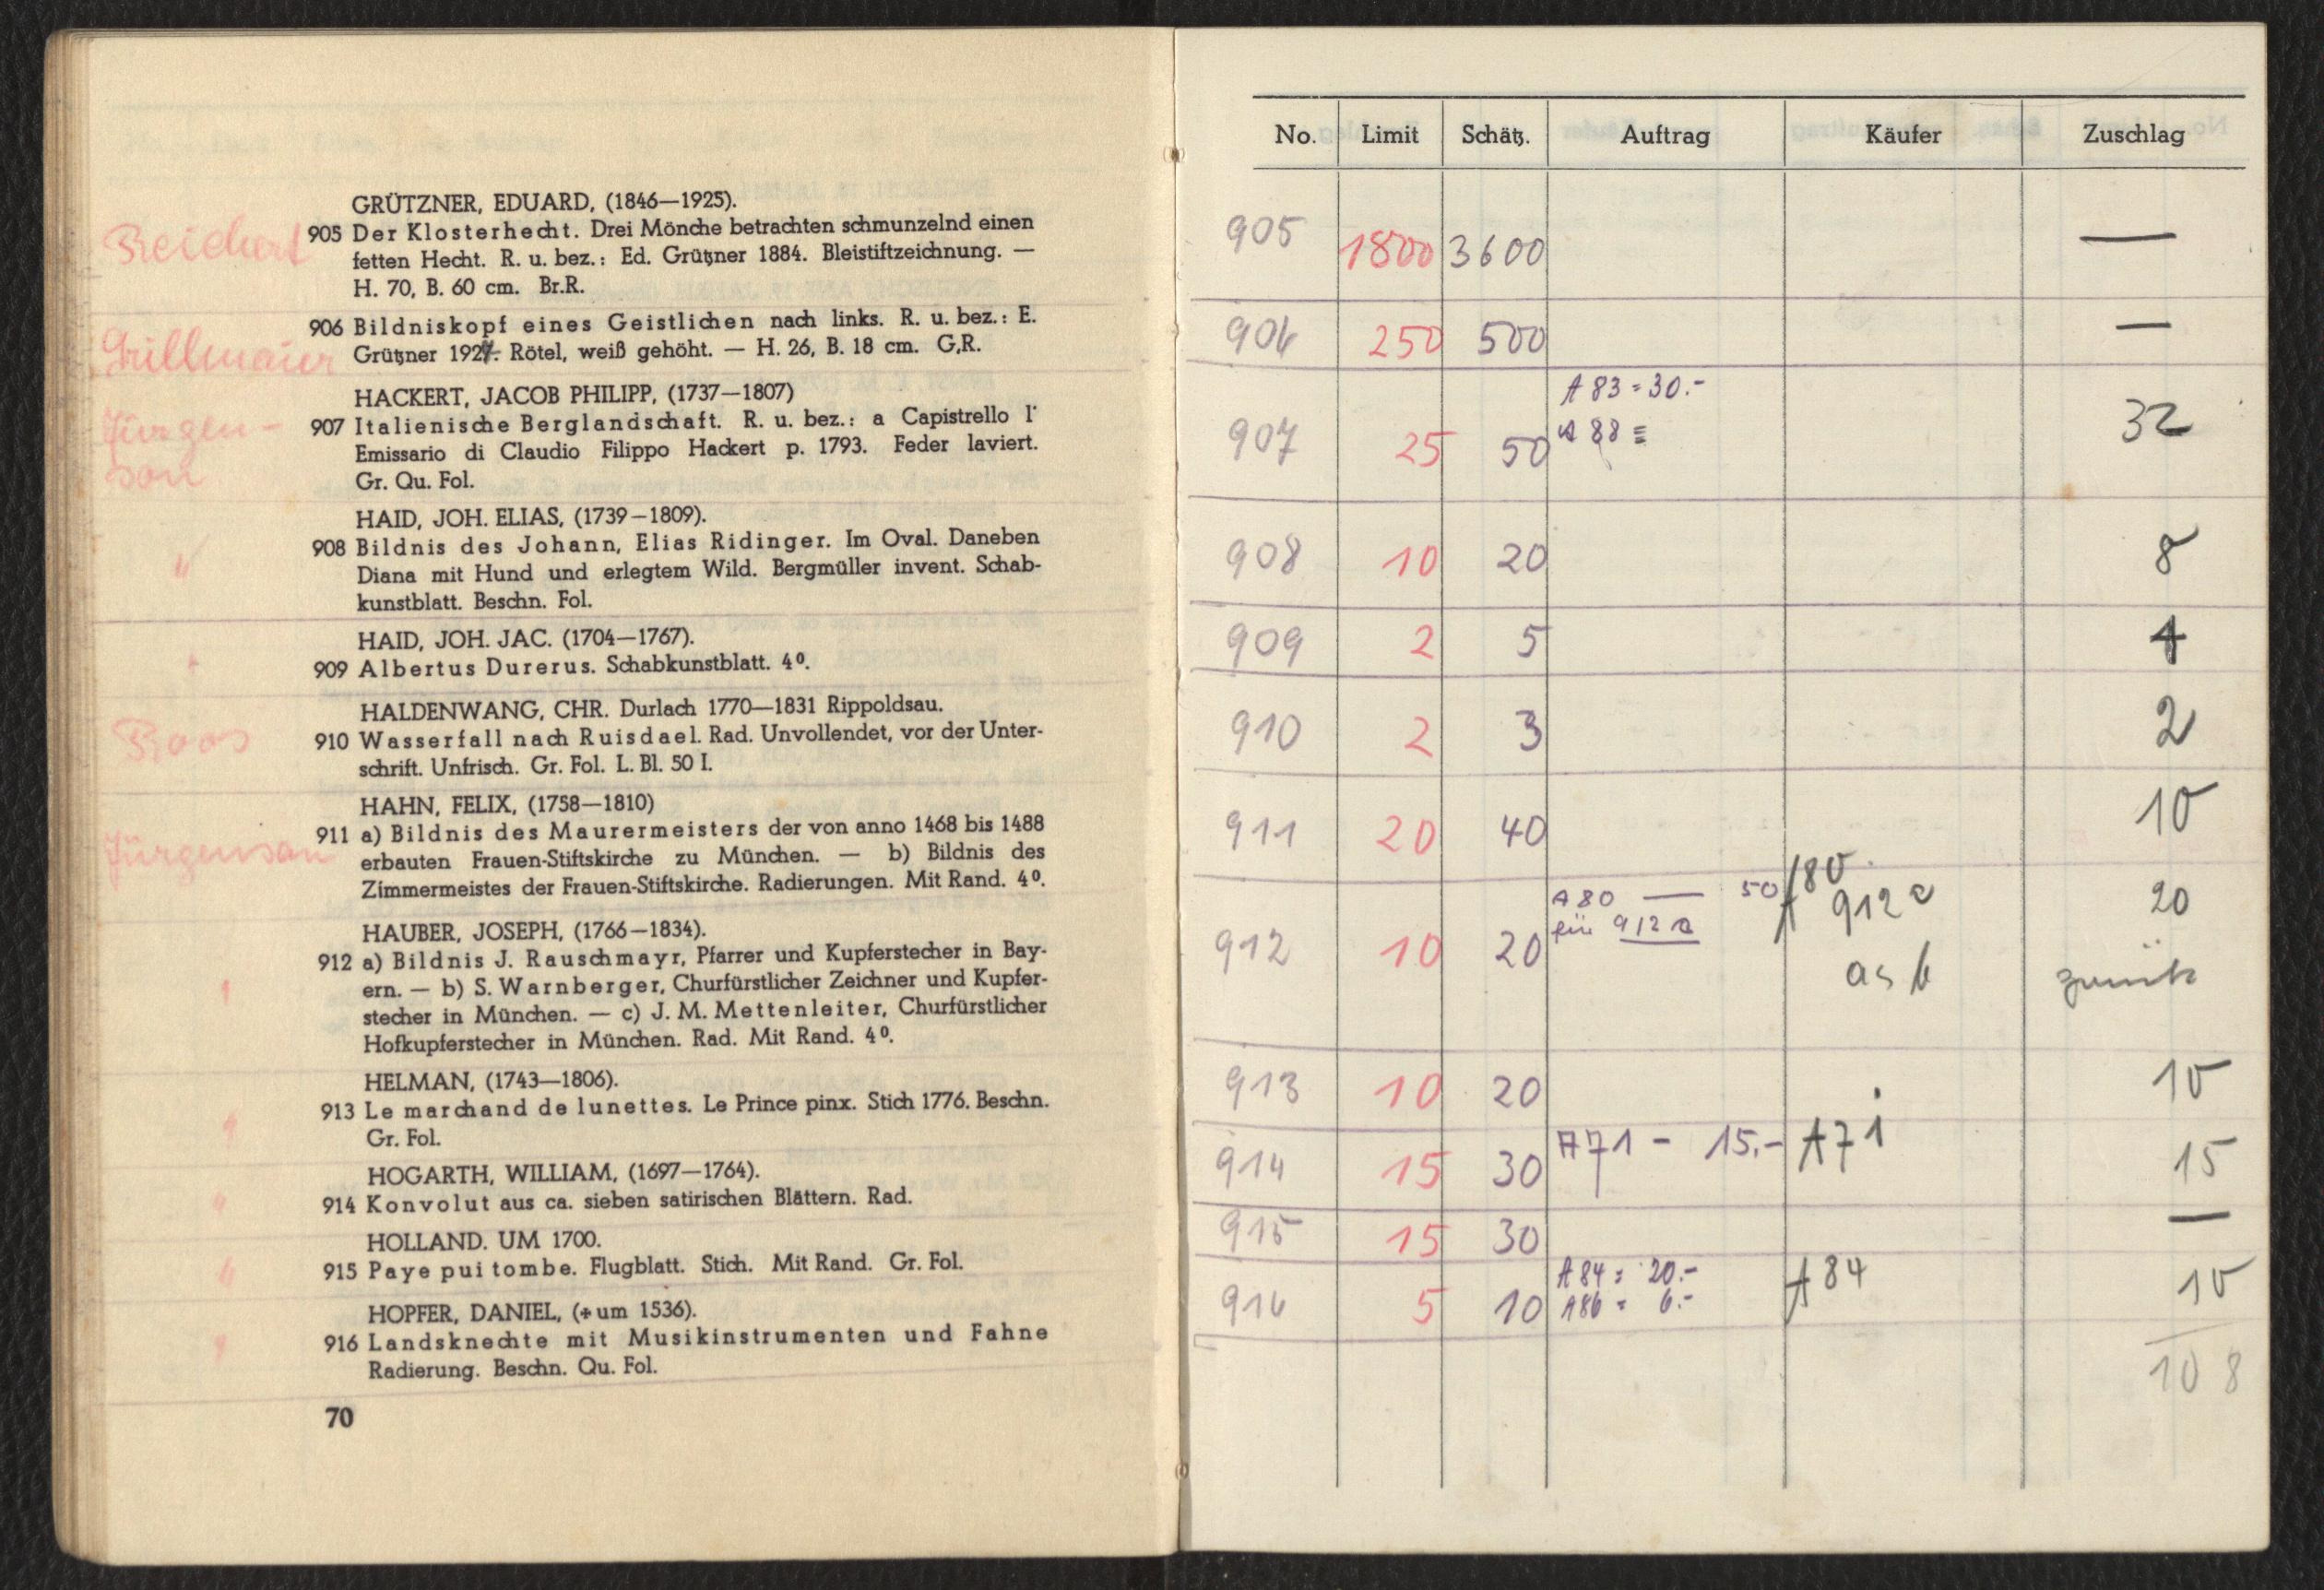 GRÜTZNER, EDUARD, (1846—1925).
Reichert
905 Der Klosterhecht. Drei Mönche betrachten schmunzelnd einen
fetten Hecht. R. u. bez.: Ed. Grützner 1884. Bleistiftzeichnung. —
H. 70, B. 60 cm. Br.R.
Grillmaier
906 Bildniskopf eines Geistlichen nach links. R. u. bez.: E.
Grützner 1924. Rötel, weiß gehöht. — H. 26, B. 18 cm. G,R.
HACKERT, JACOB PHILIPP, (1737—1807)
Jürgen-
son
907 Italienische Berglandschaft. R. u. bez.: a Capistrello l'
Emissario di Claudio Filippo Hackert p. 1793. Feder laviert.
Gr. Qu. Fol.
HAID, JOH. ELIAS, (1739–1809).
"
908 Bildnis des Johann, Elias Ridinger. Im Oval. Daneben
Diana mit Hund und erlegtem Wild. Bergmüller invent. Schab-
kunstblatt. Beschn. Fol.
HAID, JOH. JAC. (1704—1767).
"
909 Albertus Durerus. Schabkunstblatt. 4⁰.
HALDENWANG, CHR. Durlach 1770—1831 Rippoldsau.
Roos
910 Wasserfall nach Ruisdael. Rad. Unvollendet, vor der Unter-
schrift. Unfrisch. Gr. Fol. L. Bl. 50 I.
HAHN, FELIX, (1758—1810)
Jürgenson
911 a) Bildnis des Maurermeisters der von anno 1468 bis 1488
erbauten Frauen-Stiftskirche zu München. — b) Bildnis des
Zimmermeistes der Frauen-Stiftskirche. Radierungen. Mit Rand. 4⁰.
HAUBER, JOSEPH, (1766–1834).
"
912 a) Bildnis J. Rauschmayr, Pfarrer und Kupferstecher in Bay-
ern. — b) S. Warnberger, Churfürstlicher Zeichner und Kupfer-
stecher in München. — c) J. M. Mettenleiter, Churfürstlicher
Hofkupferstecher in München. Rad. Mit Rand. 4⁰.
HELMAN, (1743—1806).
"
913 Le marchand de lunettes. Le Prince pinx. Stich 1776. Beschn.
Gr. Fol.
HOGARTH, WILLIAM, (1697—1764).
"
914 Konvolut aus ca. sieben satirischen Blättern. Rad.
HOLLAND. UM 1700.
"
915 Paye pui tombe. Flugblatt. Stich. Mit Rand. Gr. Fol.
HOPFER, DANIEL, (+ um 1536).
"
916 Landsknechte mit Musikinstrumenten und Fahne
Radierung. Beschn. Qu. Fol.
70
No. Limit Schätz. Auftrag Käufer Zuschlag
905 1800 3600 —
906 250 500 —
907 25 50 A 83 = 30.- 32
A 88 =
908 10 20 8
909 2 5 4
910 2 3 2
911 20 40 10
912 10 20 A 80 — 50 A 80 20
für 912 a 912 a
zurück
913 10 20 10
914 15 30 A71 - 15.- A71 15
915 15 30 —
916 5 10 A 84 = 20.- A 84 10
A86 = 6.-
108